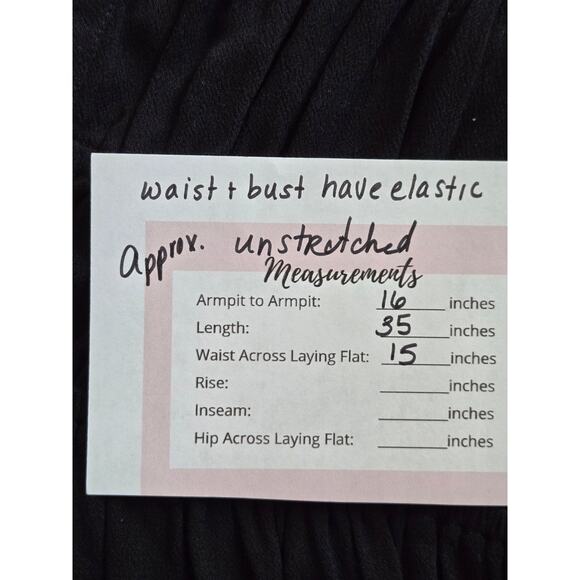 waist + bust have elastic
Approx. unstretched
Measurements
Armpit to Armpit: 16 inches
Length: 35 inches
Waist Across Laying Flat: 15 inches
Rise: ______ inches
Inseam: ______ inches
Hip Across Laying Flat: ______ inches